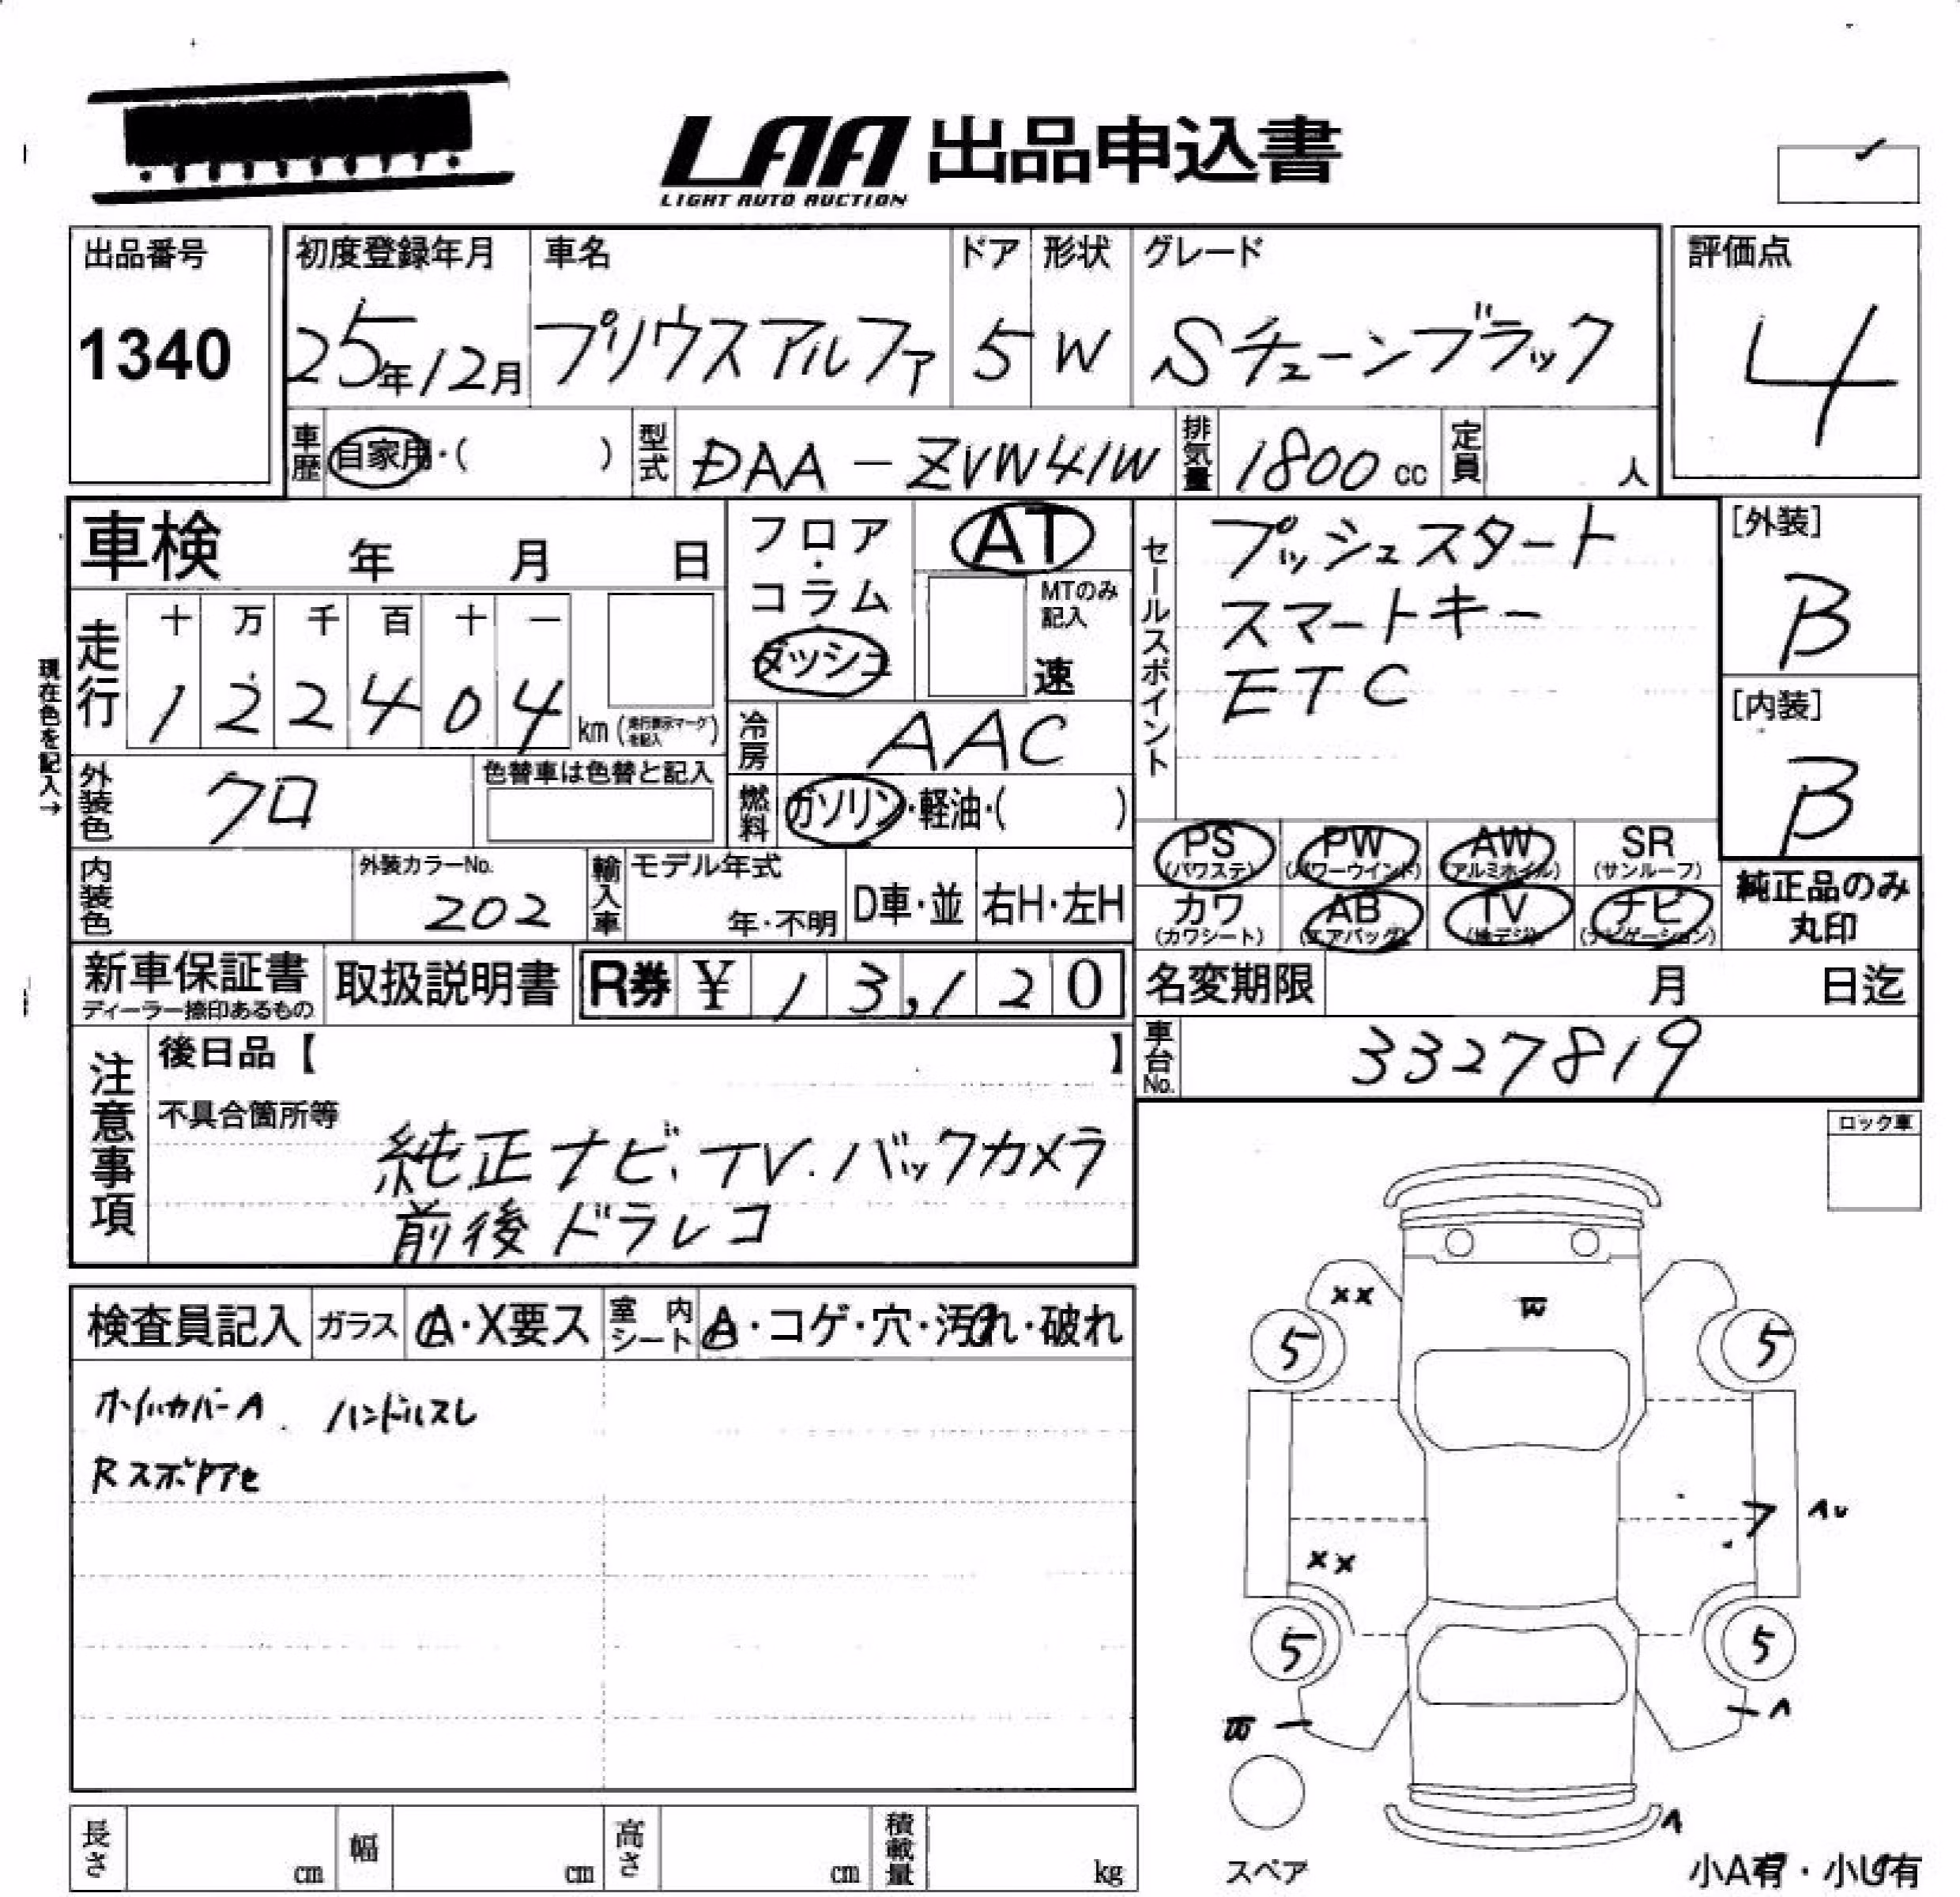 LAA 出品申込書
LIGHT AUTO AUCTION
出品番号
1340
初度登録年月
25年12月
車名
プリウスアルファ
ドア
5
形状
W
グレード
Sチューンブラック
評価点
4
車歴 自家用・( )
型式 DAA-ZVW41W
排気量 1800cc
定員 人
車検 年 月 日
フロア・コラム
ダッシュ
AT
MTのみ記入
速
現在色を記入→
走行 十 万 千 百 十 一
1 2 2 4 0 4 km (走行表示マークを記入)
冷房 AAC
外装色 クロ
色替車は色替と記入
燃料 ガソリン・軽油・( )
内装色
外装カラーNo.
202
輸入車 モデル年式
年・不明
D車・並
右H・左H
新車保証書
ディーラー捺印あるもの
取扱説明書
R券 ¥ 13,120
セールスポイント
プッシュスタート
スマートキー
ETC
[外装]
B
[内装]
B
PS (パワステ)
PW (パワーウインド)
AW (アルミホイル)
SR (サンルーフ)
カワ (カワシート)
AB (エアバック)
TV (地デジ)
ナビ (ナビゲーション)
純正品のみ
丸印
名変期限 月 日迄
車台No. 3327819
注意事項
後日品【 】
不具合箇所等
純正ナビ、TV.バックカメラ
前後ドラレコ
ロック車
検査員記入
ガラス A・X要ス
室内シート A・コゲ・穴・汚れ・破れ
ホイルカバーA ハンドルスレ
XX
5
5
XX
5
5
スペア
小A有・小U有
長さ cm
幅 cm
高さ cm
積載量 kg